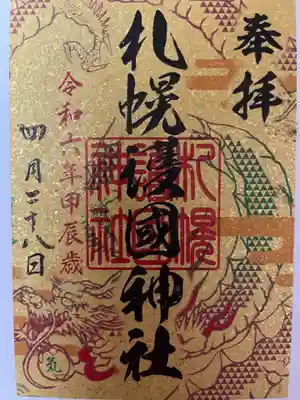 奉拝
札幌護國神社
札幌護國神社
令和六年甲辰歳
四月二十八日
気